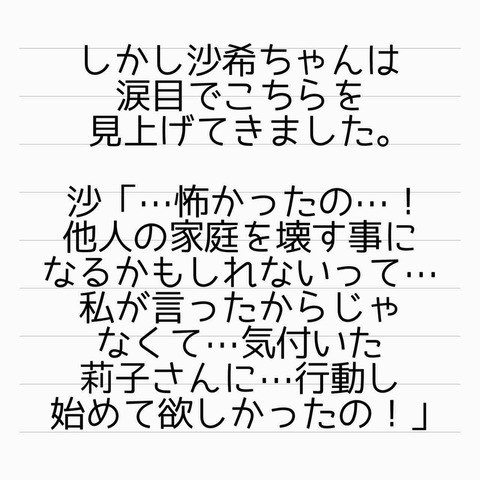 しかし沙希ちゃんは
涙目でこちらを
見上げてきました。
沙「…怖かったの…！
他人の家庭を壊す事に
なるかもしれないって…
私が言ったからじゃ
なくて…気付いた
莉子さんに…行動し
始めて欲しかったの！」